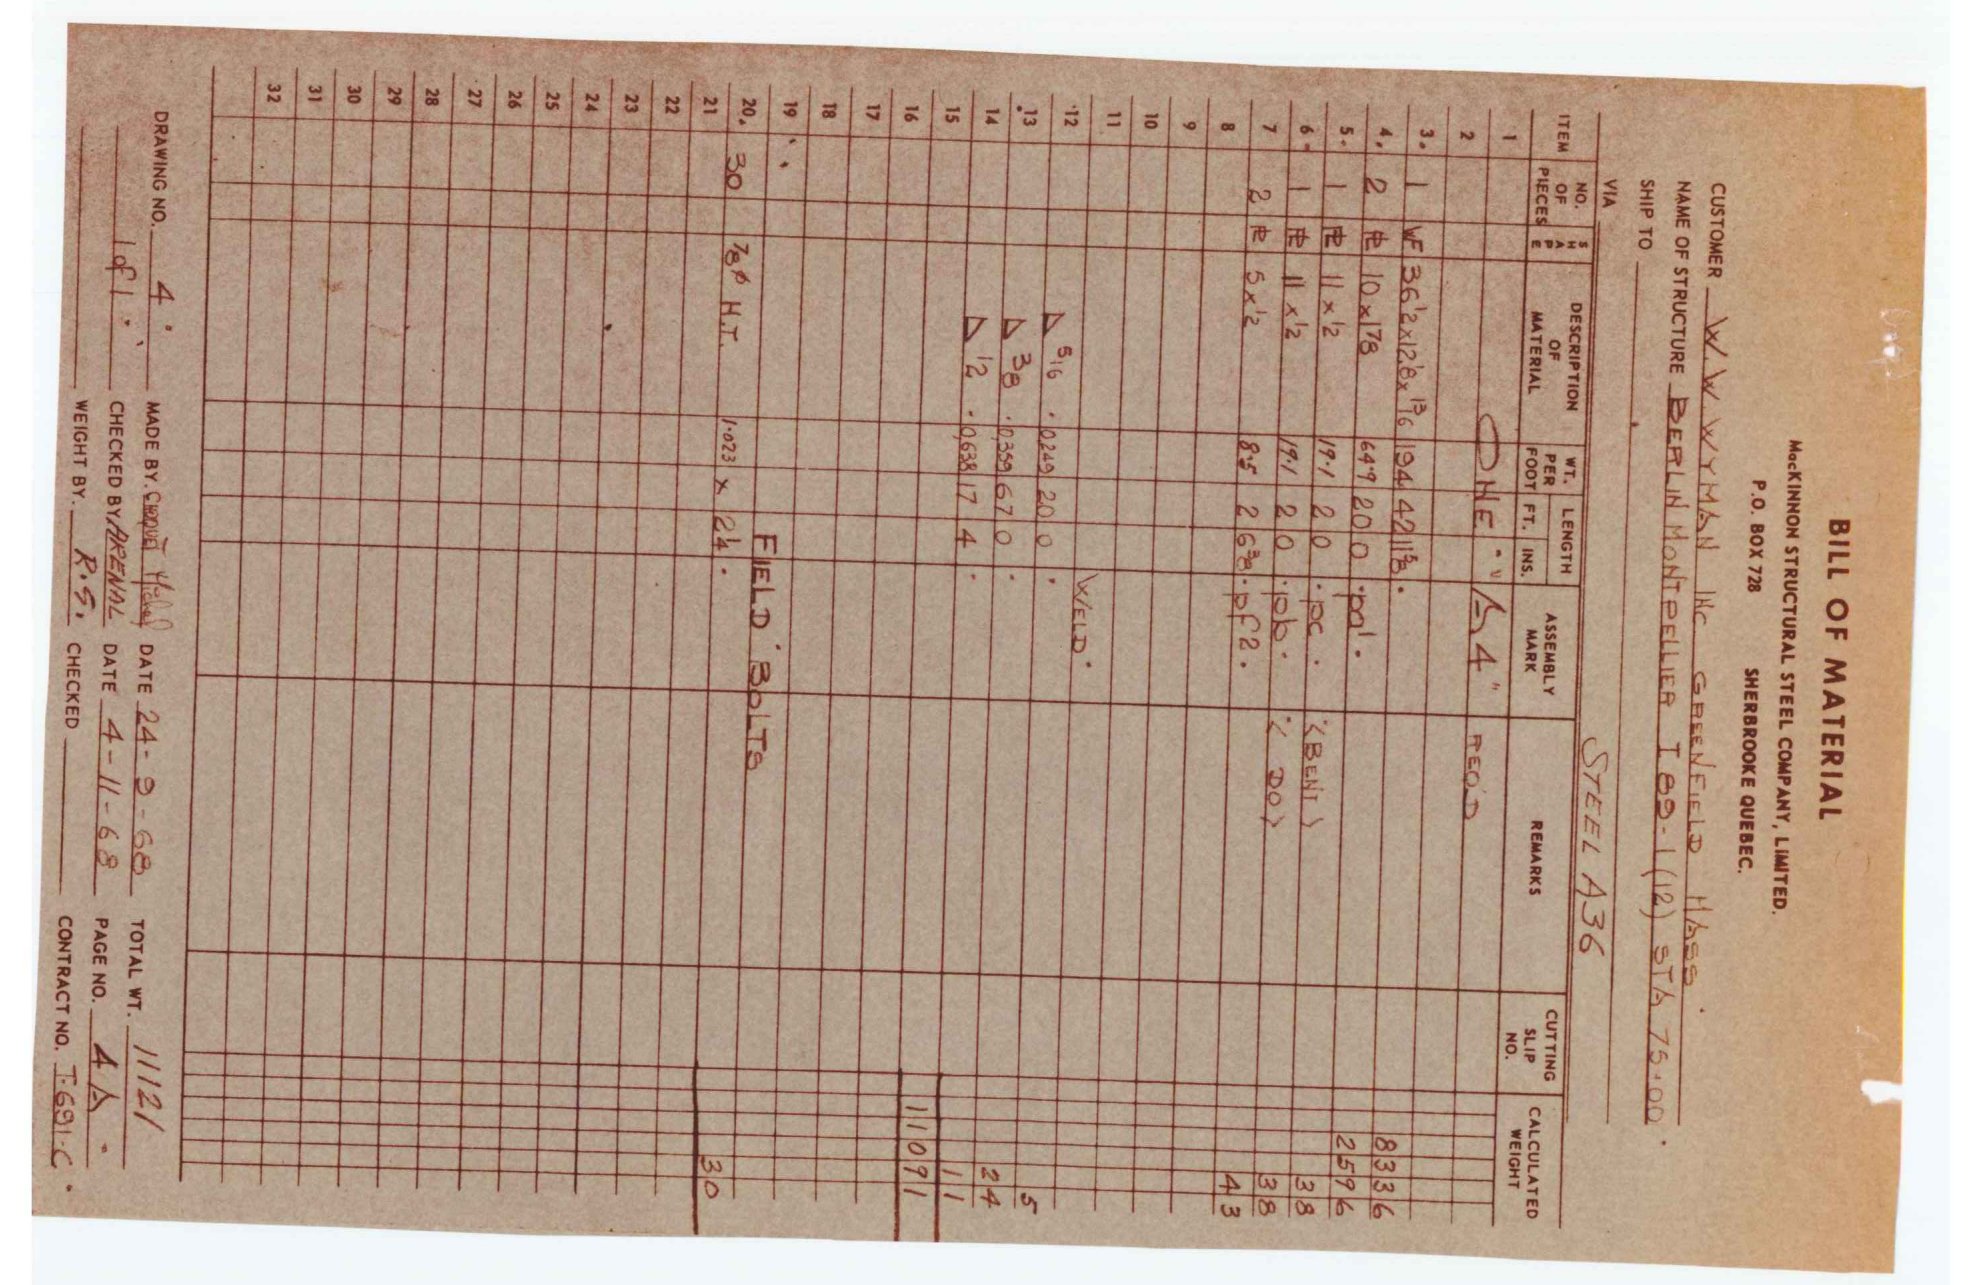 BILL OF MATERIAL
MacKINNON STRUCTURAL STEEL COMPANY, LIMITED.
P.O. BOX 728 SHERBROOKE QUEBEC.
CUSTOMER W.W.WYMAN INC GREENFIELD MASS.
NAME OF STRUCTURE BERLIN MONTPELLIER I 89-1 (12) STA 75+00.
SHIP TO
VIA STEEL A36
ITEM NO. OF PIECES SHAPE DESCRIPTION OF MATERIAL WT. PER FOOT LENGTH FT. INS. ASSEMBLY MARK REMARKS CUTTING SLIP NO. CALCULATED WEIGHT
1
2 ONE - "A4" REQ'D
3. 1 WF 36 1/2 x 12 1/8 x 13/16 194 42 11 5/8. 8336
4. 2 PL 10 x 1 7/8 64.9 20 0 . pa'. 2596
5. 1 PL 11 x 1/2 19.1 2 0 . pc. (BENT) 38
6. 1 PL 11 x 1/2 19.1 2 0 . pb. (DO) 38
7 2 PL 5 x 1/2 8.5 2 6 3/8 . pf2. 43
8
9
10
11
12 WELD.
13. 5/16 .0249 20 0 . 5
14 3/8 .0359 67 0 . 24
15 1/2 .0638 17 4 . 11
16 11091
17
18
19 FIELD BOLTS
20. 30 7/8 ø H.T. 1.023 x 2 1/4. 30
21
22
23
24
25
26
27
28
29
30
31
32
DRAWING NO. 4. MADE BY. DATE 24-9-68 TOTAL WT. 11121
1 of 1. CHECKED BY ARENAL DATE 4-11-68 PAGE NO. 4A.
WEIGHT BY. R.S. CHECKED CONTRACT NO. T-691-C.